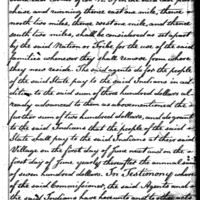 house and running thence east one mile, thence
north two miles, thence west one mile, and thence
south two miles, shall be considered as set apart
by the said Nation or Tribe for the use of the said
families whenever they shall remove from where
they now reside. The said agents do for the people
of the said State, pay to the said Indians in ad-
dition to the said sum of three hundred dollars al-
ready advanced to them as abovementioned the
further sum of two hundred dollars, and do grant
to the said Indians that the people of the said
State shall pay to the said Indians at their said
Village on the first day of June next and on the
first day of June yearly thereafter the annual sum
of seven hundred dollars. In Testimony where
of the said Commissioner, the said Agents and
the said Indians have hereunto and to other acts